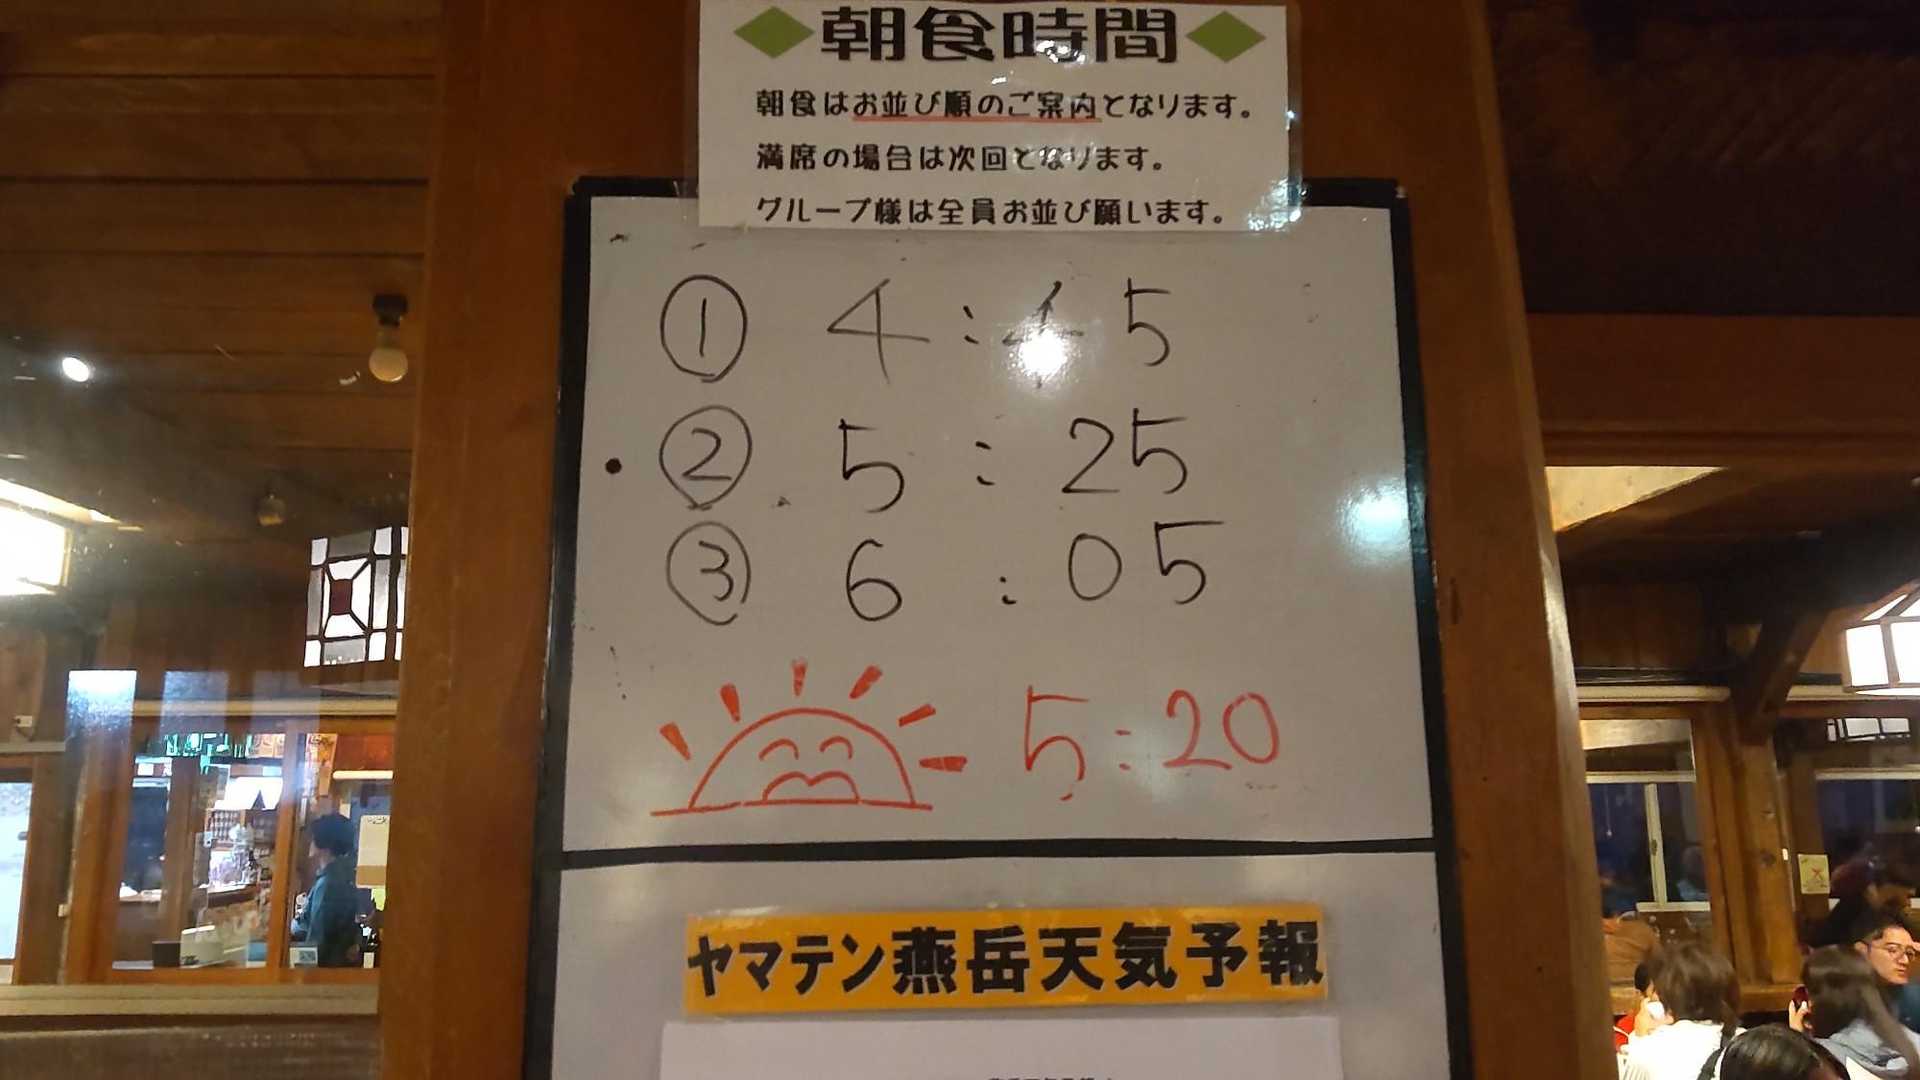 朝食時間
朝食はお並び順のご案内となります。
満席の場合は次回となります。
グループ様は全員お並び願います。
① 4:45
② 5:25
③ 6:05
5:20
ヤマテン燕岳天気予報